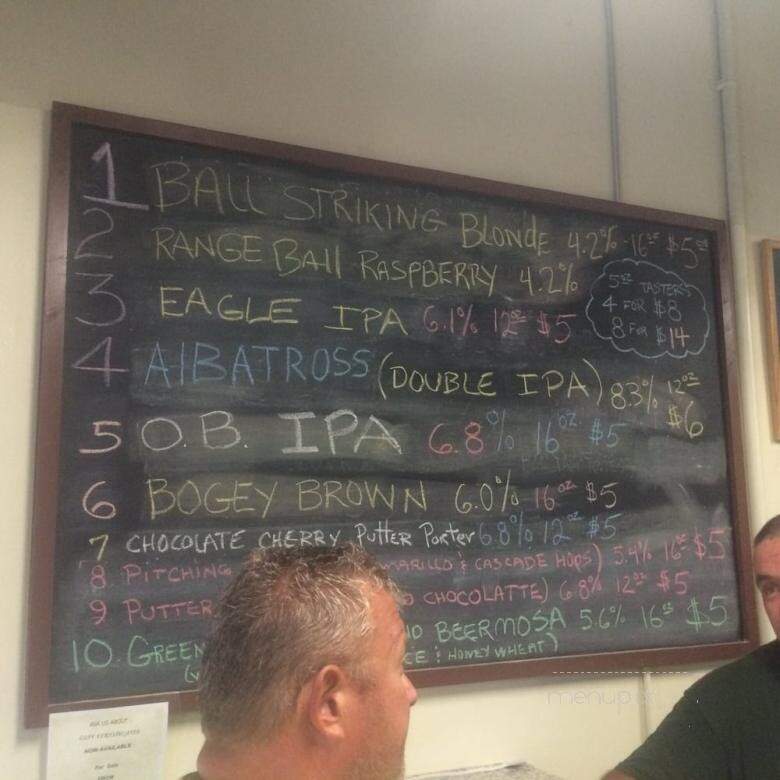 1 BALL STRIKING BLONDE 4.2% - 16oz $5.00
2 RANGE BAll RASPBERRY 4.2%
5oz TASTERS
4 FOR $8
8 FOR $14
3 EAGLE IPA 6.1% 12oz $5
4 AlBATROSS (DOUBLE IPA) 8.3% 12oz $6
5 O.B. IPA 6.8% 16oz $5
6 BOGEY BROWN 6.0% 16oz $5
7 CHOCOLATE CHERRY PuTTER PorTer 6.8% 12oz $5
8 PITCHING & CASCADE HOPS) 5.4% 16oz $5
9 PUTTER CHOCOLATTE) 6.8% 12oz $5
10. GREEN BEERMOSA 5.6% 16oz $5
HONEY WHEAT)
ASK US ABOUT
NOW AVAILABLE
For Sale
menupix